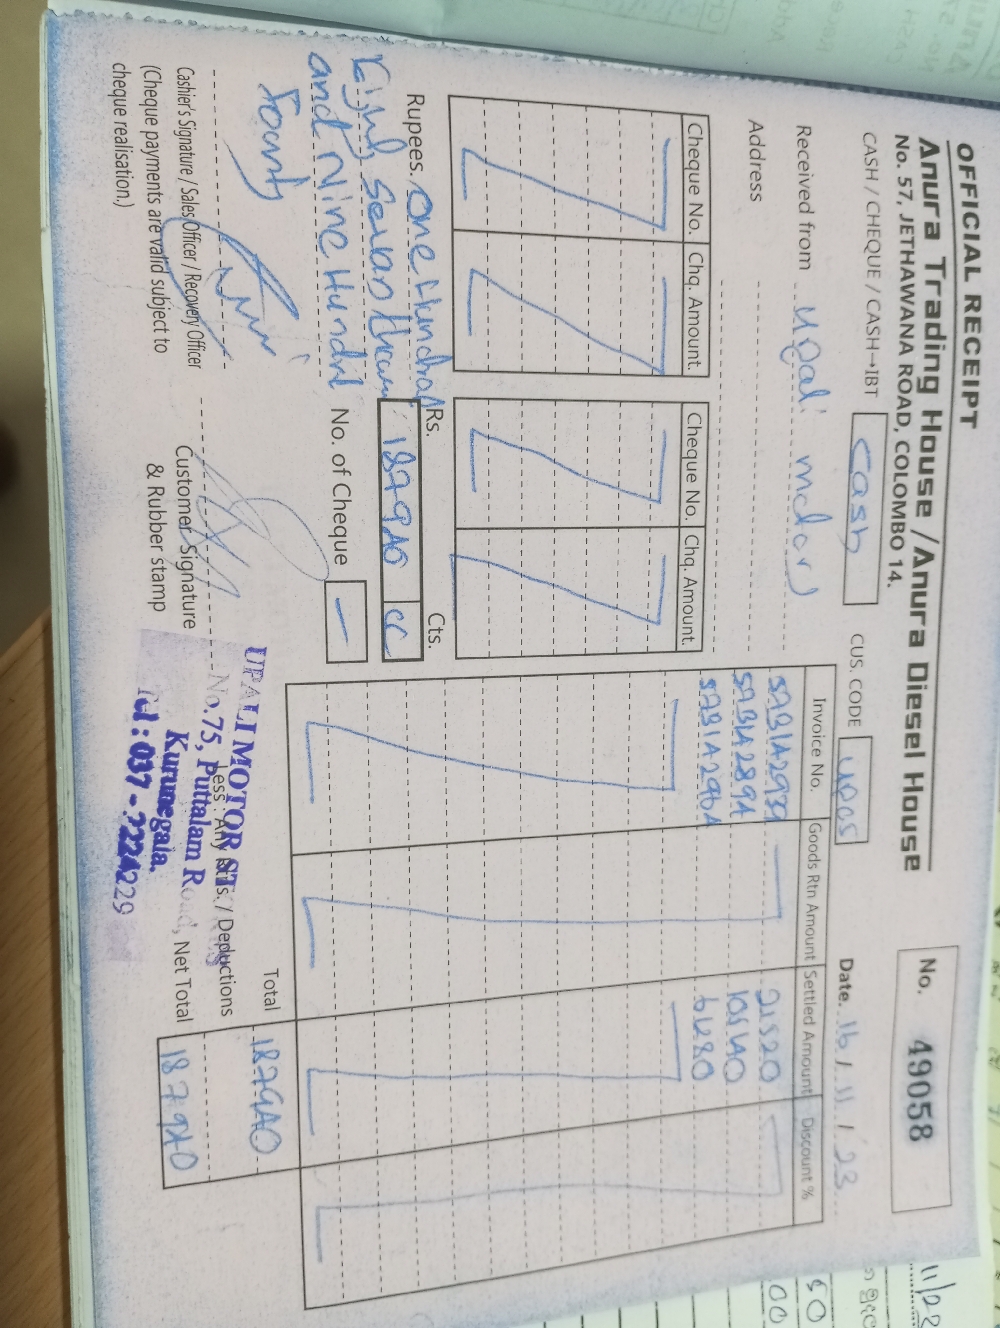 OFFICIAL RECEIPT
Anura Trading House / Anura Diesel House
No. 57, JETHAWANA ROAD, COLOMBO 14.
No. 49058
CASH / CHEQUE / CASH→IBT Cash CUS. CODE UP05 Date. 16 / 11 / 23
Received from Upali motors
Address
Cheque No. Chq. Amount. Cheque No. Chq. Amount.
Invoice No. Goods Rtn Amount Settled Amount Discount %
21520
105140
61280
Rupees. One Hundred
Eight Seven thous
and Nine Hundrd
Fourty
Rs. 187940 Cts. cc
No. of Cheque —
Total 187940
Less : Any Rtls. / Deductions
Net Total 187940
Cashier's Signature / Sales Officer / Recovery Officer
(Cheque payments are valid subject to
cheque realisation.)
Customer Signature
& Rubber stamp
UPALI MOTOR ST
No.75, Puttalam Road,
Kurunegala.
Tel : 037 - 2224229